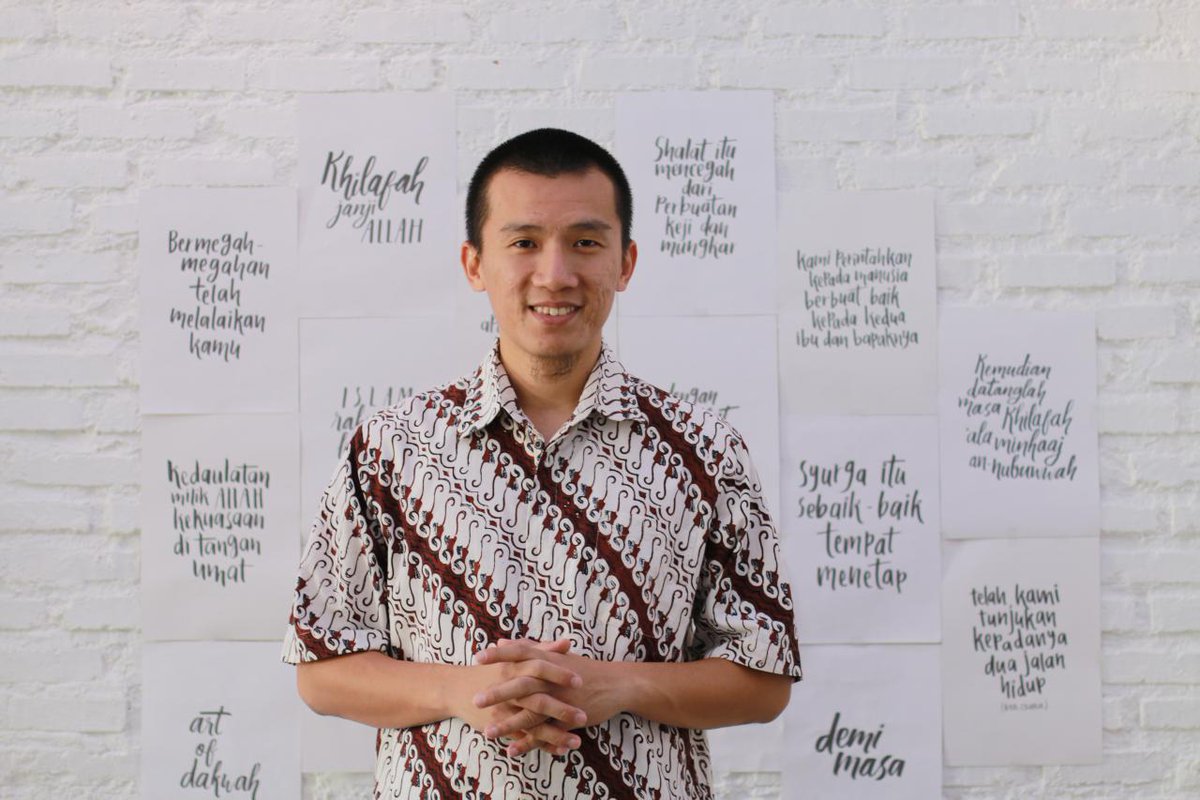 Bermegah-
megahan
telah
melalaikan
kamu
Khilafah
janji
ALLAH
Shalat itu
mencegah
dari
Perbuatan
keji dan
mungkar
Kami Perintahkan
kepada manusia
berbuat baik
kepada kedua
ibu dan bapaknya
Kemudian
datanglah
masa Khilafah
'ala minhaaj
an-nubuwwah
Kedaulatan
milik ALLAH
kekuasaan
di tangan
umat
ISLAM
Syurga itu
sebaik-baik
tempat
menetap
telah kami
tunjukan
kepadanya
dua jalan
hidup
art
of
dakwah
demi
masa